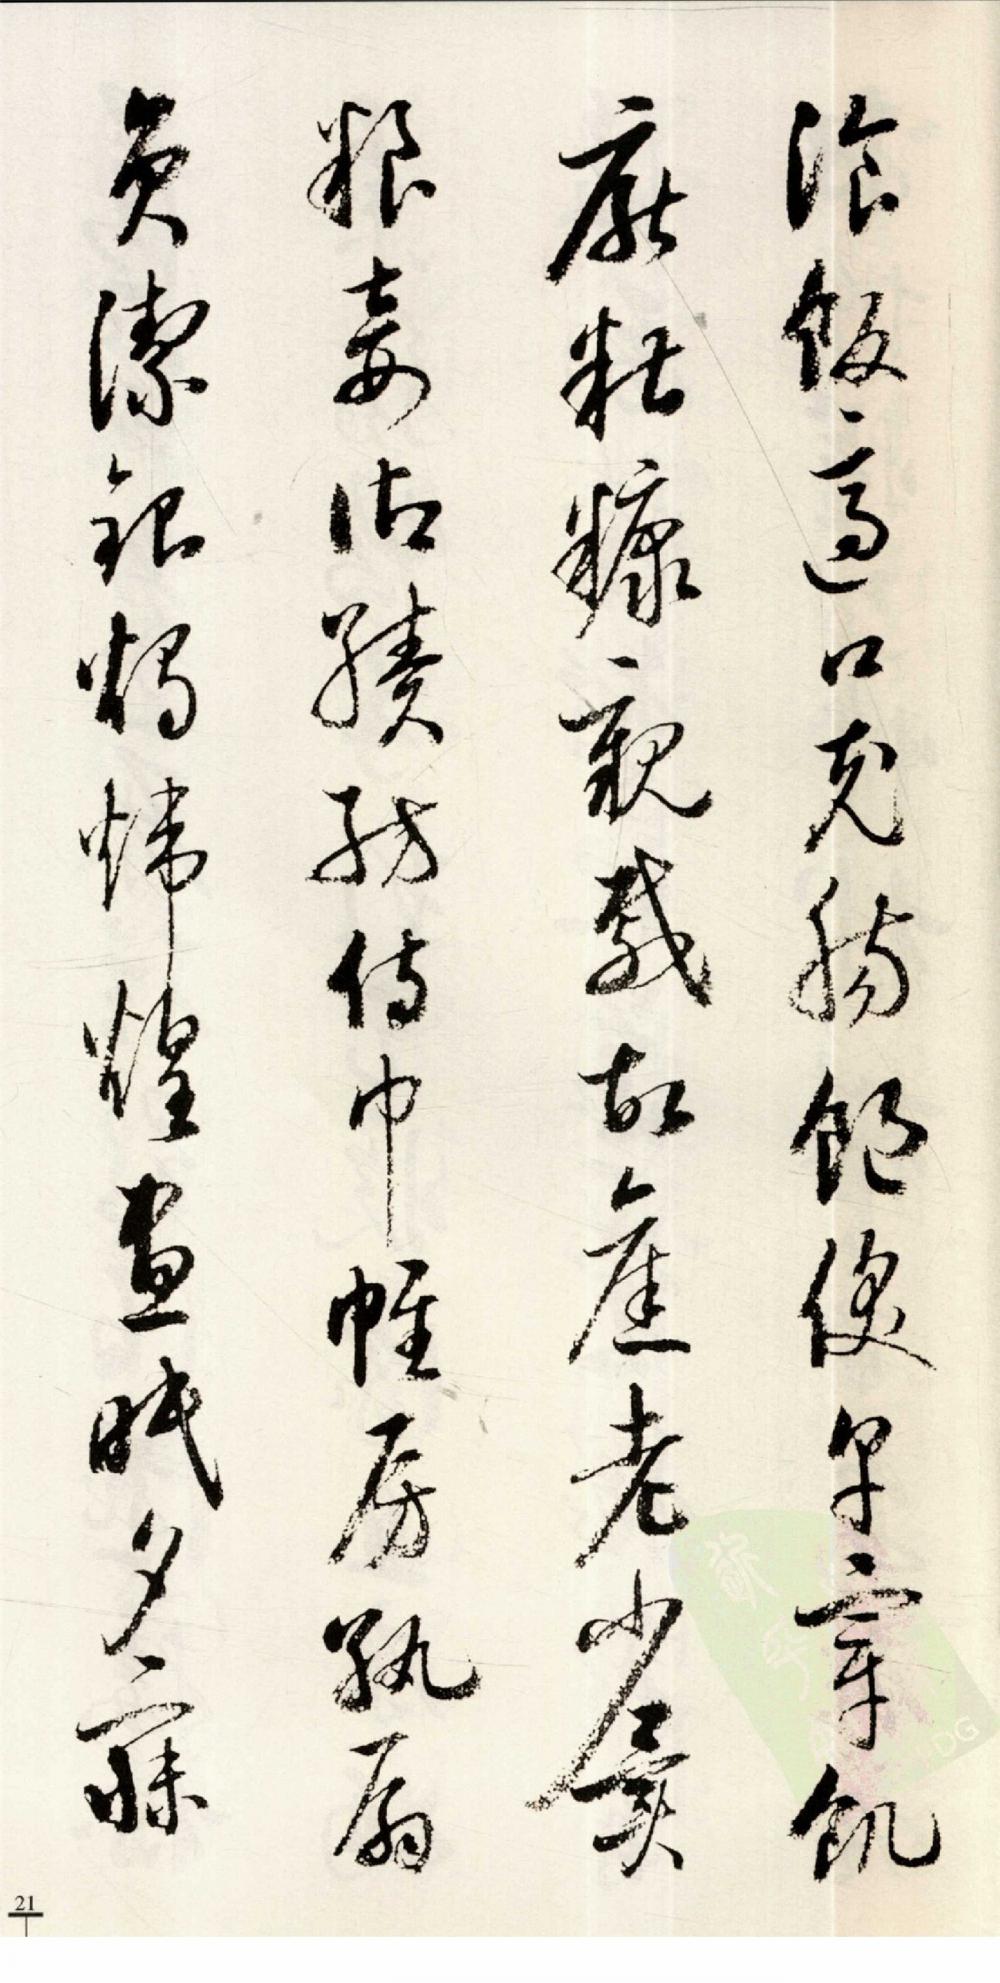 湌飯適口充腸飽飫享宰飢
厭糟糠親戚故舊老少異
粮妾御績紡侍巾帷房紈扇
員潔銀燭煒煌晝眠夕寐
21